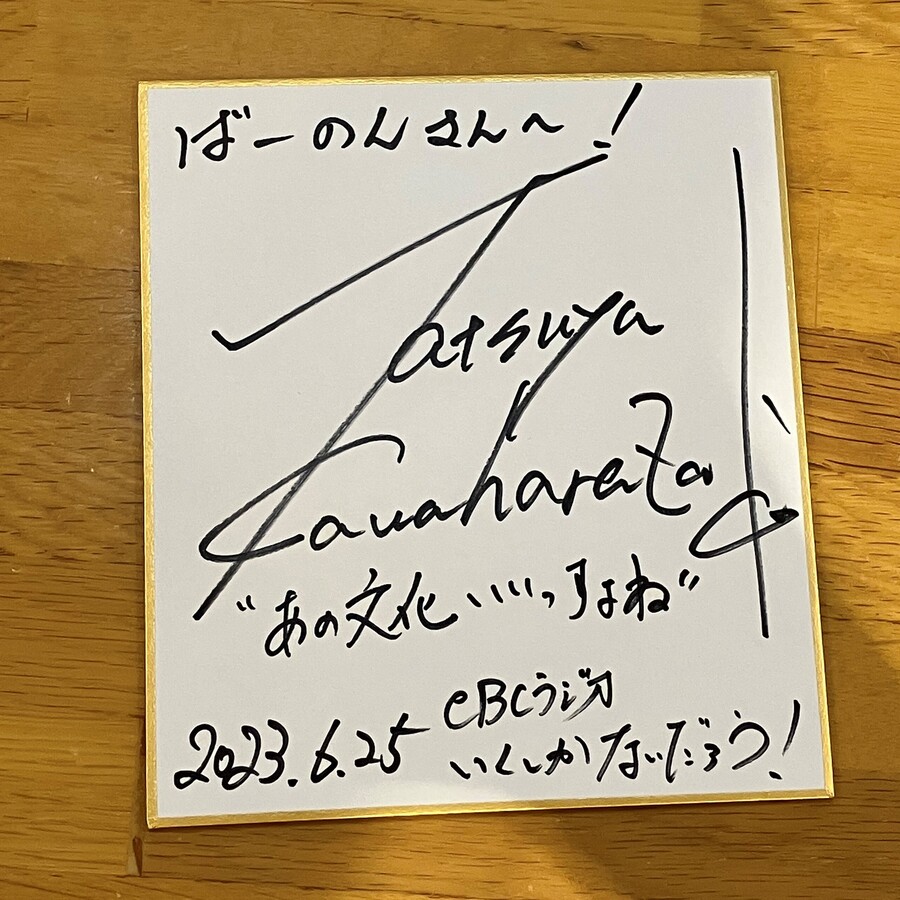 ばーのんさん〜!
Tatsuya
Kawaharazak
"あの文化いいっすよね"
2023.6.25
CBCラジオ
いくしかないだろう!